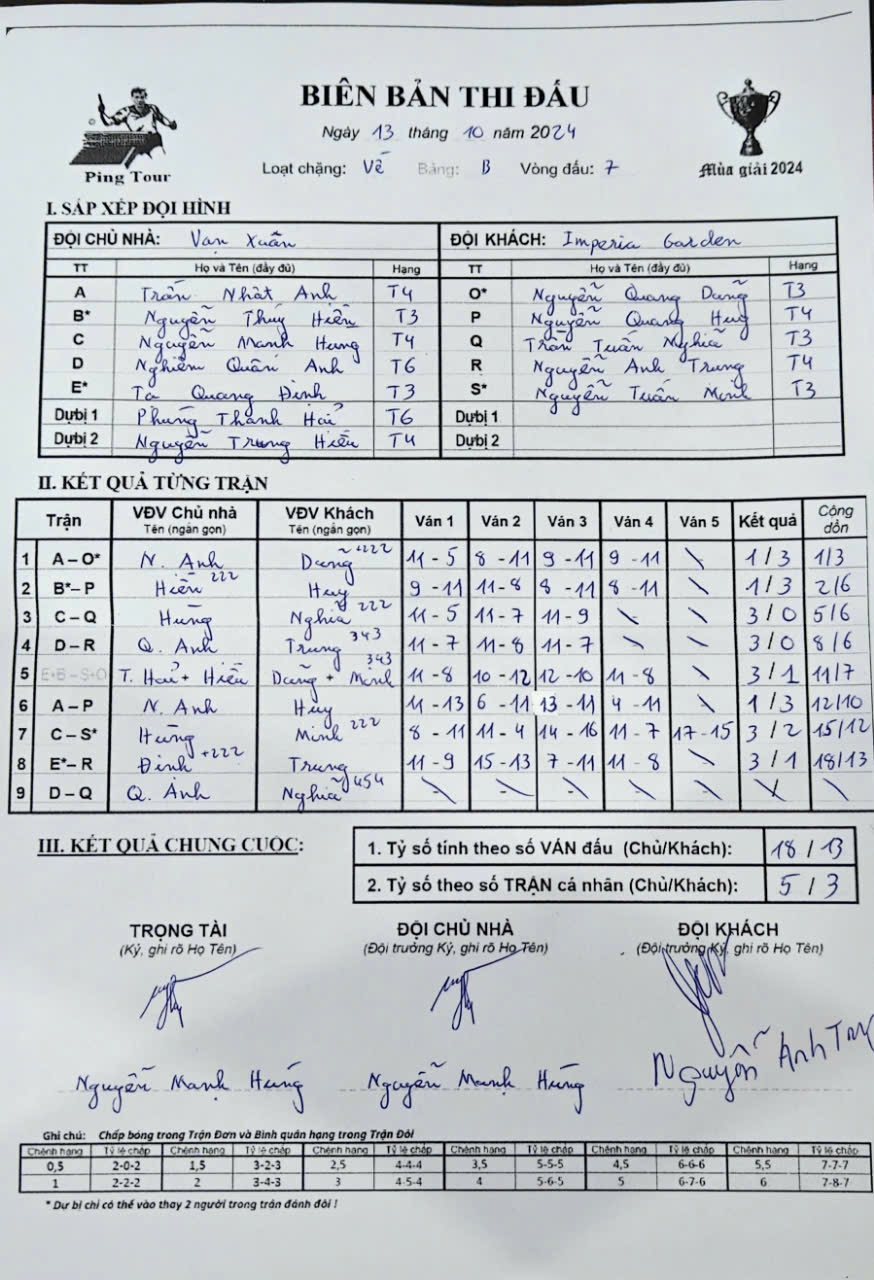 BIÊN BẢN THI ĐẤU
Ngày 13 tháng 10 năm 2024
Ping Tour
Loạt chặng: Về Bảng: B Vòng đấu: 7
Mùa giải 2024
I. SẮP XẾP ĐỘI HÌNH
ĐỘI CHỦ NHÀ: Vạn Xuân ĐỘI KHÁCH: Imperia Garden
TT Họ và Tên (đầy đủ) Hạng TT Họ và Tên (đầy đủ) Hạng
A Trần Nhật Anh T4 O* Nguyễn Quang Dũng T3
B* Nguyễn Thúy Hiền T3 P Nguyễn Quang Huy T4
C Nguyễn Mạnh Hùng T4 Q Trần Tuấn Nghĩa T3
D Nghiêm Quân Anh T6 R Nguyễn Anh Trung T4
E* Tạ Quang Đình T3 S* Nguyễn Tuấn Minh T3
Dự bị 1 Phùng Thanh Hải T6 Dự bị 1
Dự bị 2 Nguyễn Trung Hiếu T4 Dự bị 2
II. KẾT QUẢ TỪNG TRẬN
Trận VĐV Chủ nhà VĐV Khách Ván 1 Ván 2 Ván 3 Ván 4 Ván 5 Kết quả Cộng dồn
Tên (ngắn gọn) Tên (ngắn gọn)
1 A – O* N. Anh Dũng +222 11 - 5 8 - 11 9 - 11 9 - 11 \ 1 / 3 1/3
2 B* – P Hiền 222 Huy 9 - 11 11 - 8 8 - 11 8 - 11 \ 1 / 3 2/6
3 C – Q Hùng Nghĩa 222 11 - 5 11 - 7 11 - 9 \ \ 3 / 0 5/6
4 D – R Q. Anh Trung 343 11 - 7 11 - 8 11 - 7 \ \ 3 / 0 8/6
5 E+B – S+O T. Hải + Hiếu Dũng + Minh 343 11 - 8 10 - 12 12 - 10 11 - 8 \ 3 / 1 11/7
6 A – P N. Anh Huy 11 - 13 6 - 11 13 - 11 4 - 11 \ 1 / 3 12/10
7 C – S* Hùng Minh 222 8 - 11 11 - 4 14 - 16 11 - 7 17 - 15 3 / 2 15/12
8 E* – R Đình +222 Trung 11 - 9 15 - 13 7 - 11 11 - 8 \ 3 / 1 18/13
9 D – Q Q. Anh Nghĩa 454 \ \ \ \ \ \ \
III. KẾT QUẢ CHUNG CUỘC:
1. Tỷ số tính theo số VÁN đấu (Chủ/Khách): 18 / 13
2. Tỷ số theo số TRẬN cá nhân (Chủ/Khách): 5 / 3
TRỌNG TÀI ĐỘI CHỦ NHÀ ĐỘI KHÁCH
(Ký, ghi rõ Họ Tên) (Đội trưởng Ký, ghi rõ Họ Tên) (Đội trưởng Ký, ghi rõ Họ Tên)
Nguyễn Mạnh Hùng Nguyễn Mạnh Hùng Nguyễn Anh
Ghi chú: Chấp bóng trong Trận Đơn và Bình quân hạng trong Trận Đôi
Chênh hạng Tỷ lệ chấp Chênh hạng Tỷ lệ chấp Chênh hạng Tỷ lệ chấp Chênh hạng Tỷ lệ chấp Chênh hạng Tỷ lệ chấp Chênh hạng Tỷ lệ chấp
0,5 2-0-2 1,5 3-2-3 2,5 4-4-4 3,5 5-5-5 4,5 6-6-6 5,5 7-7-7
1 2-2-2 2 3-4-3 3 4-5-4 4 5-6-5 5 6-7-6 6 7-8-7
* Dự bị chỉ có thể vào thay 2 người trong trận đánh đôi !